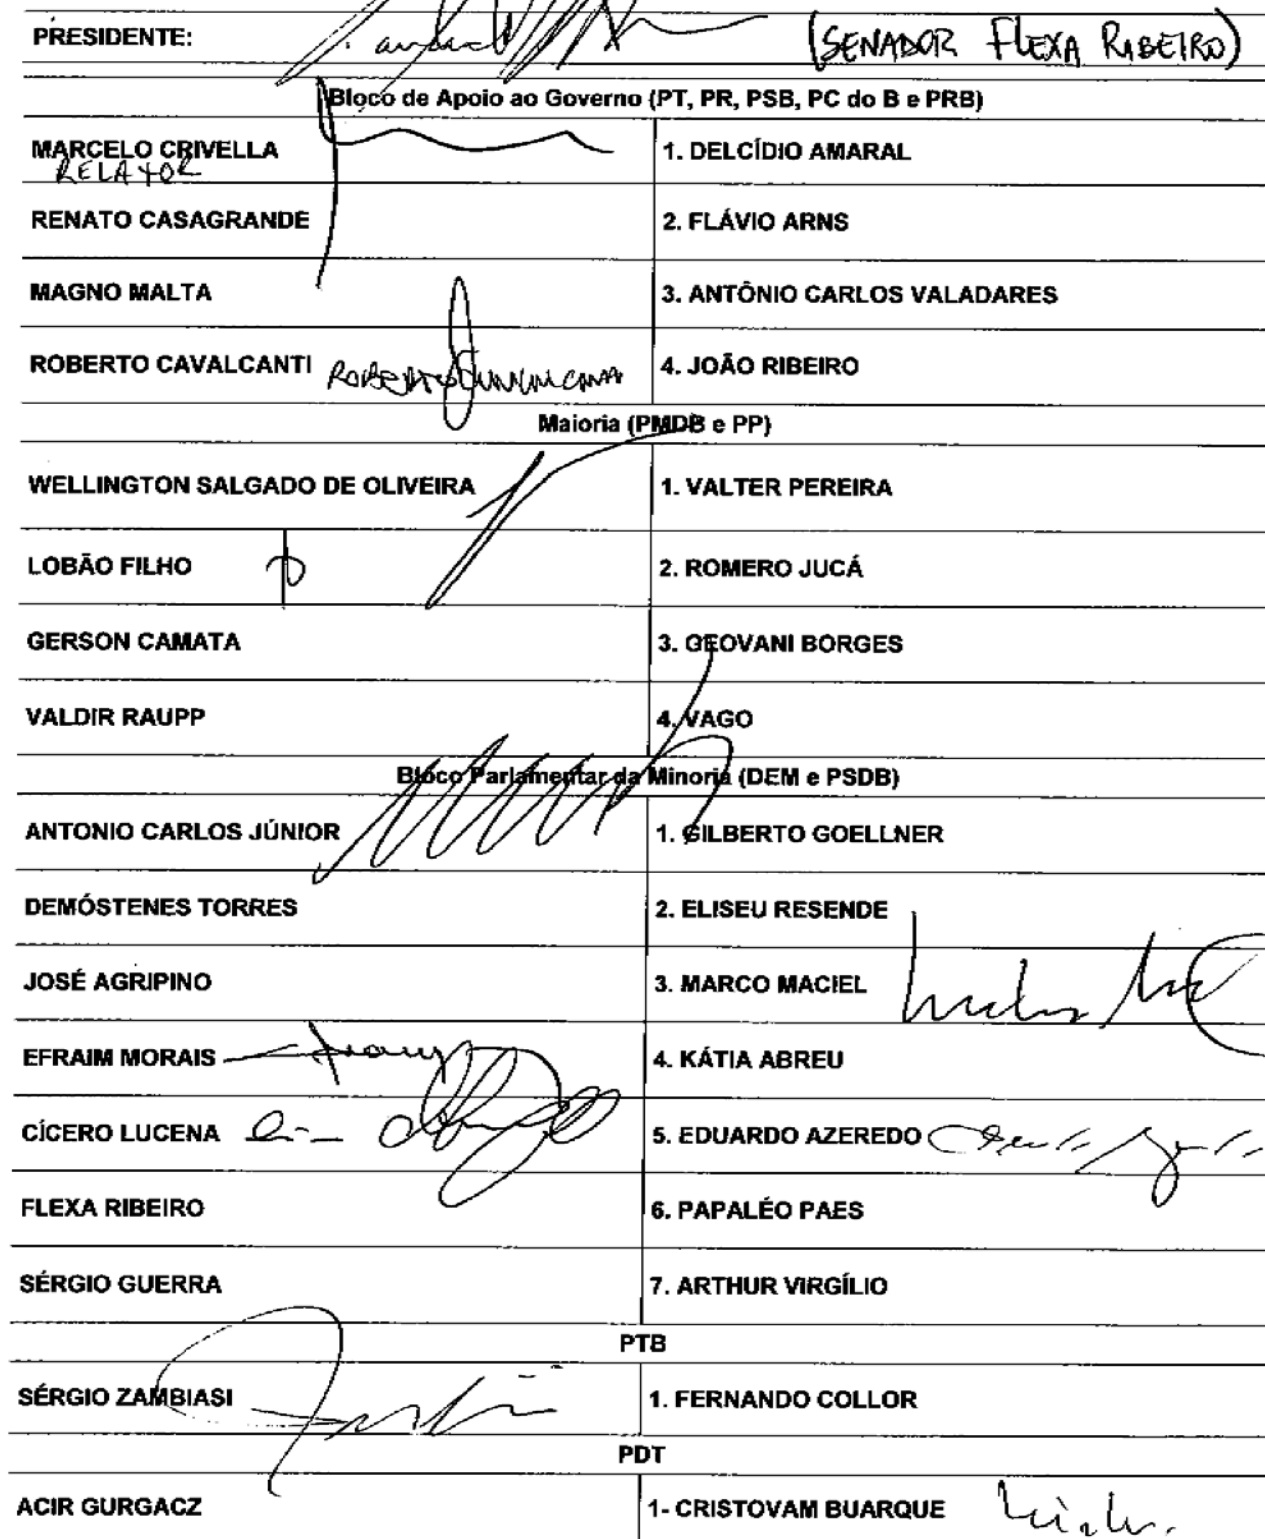 PRESIDENTE: (SENADOR FLEXA RIBEIRO)
Bloco de Apoio ao Governo (PT, PR, PSB, PC do B e PRB)
MARCELO CRIVELLA 1. DELCÍDIO AMARAL
RELATOR
RENATO CASAGRANDE 2. FLÁVIO ARNS
MAGNO MALTA 3. ANTÔNIO CARLOS VALADARES
ROBERTO CAVALCANTI 4. JOÃO RIBEIRO
Maioria (PMDB e PP)
WELLINGTON SALGADO DE OLIVEIRA 1. VALTER PEREIRA
LOBÃO FILHO 2. ROMERO JUCÁ
GERSON CAMATA 3. GEOVANI BORGES
VALDIR RAUPP 4. VAGO
Bloco Parlamentar da Minoria (DEM e PSDB)
ANTONIO CARLOS JÚNIOR 1. GILBERTO GOELLNER
DEMÓSTENES TORRES 2. ELISEU RESENDE
JOSÉ AGRIPINO 3. MARCO MACIEL
EFRAIM MORAIS 4. KÁTIA ABREU
CÍCERO LUCENA 5. EDUARDO AZEREDO
FLEXA RIBEIRO 6. PAPALÉO PAES
SÉRGIO GUERRA 7. ARTHUR VIRGÍLIO
PTB
SÉRGIO ZAMBIASI 1. FERNANDO COLLOR
PDT
ACIR GURGACZ 1- CRISTOVAM BUARQUE